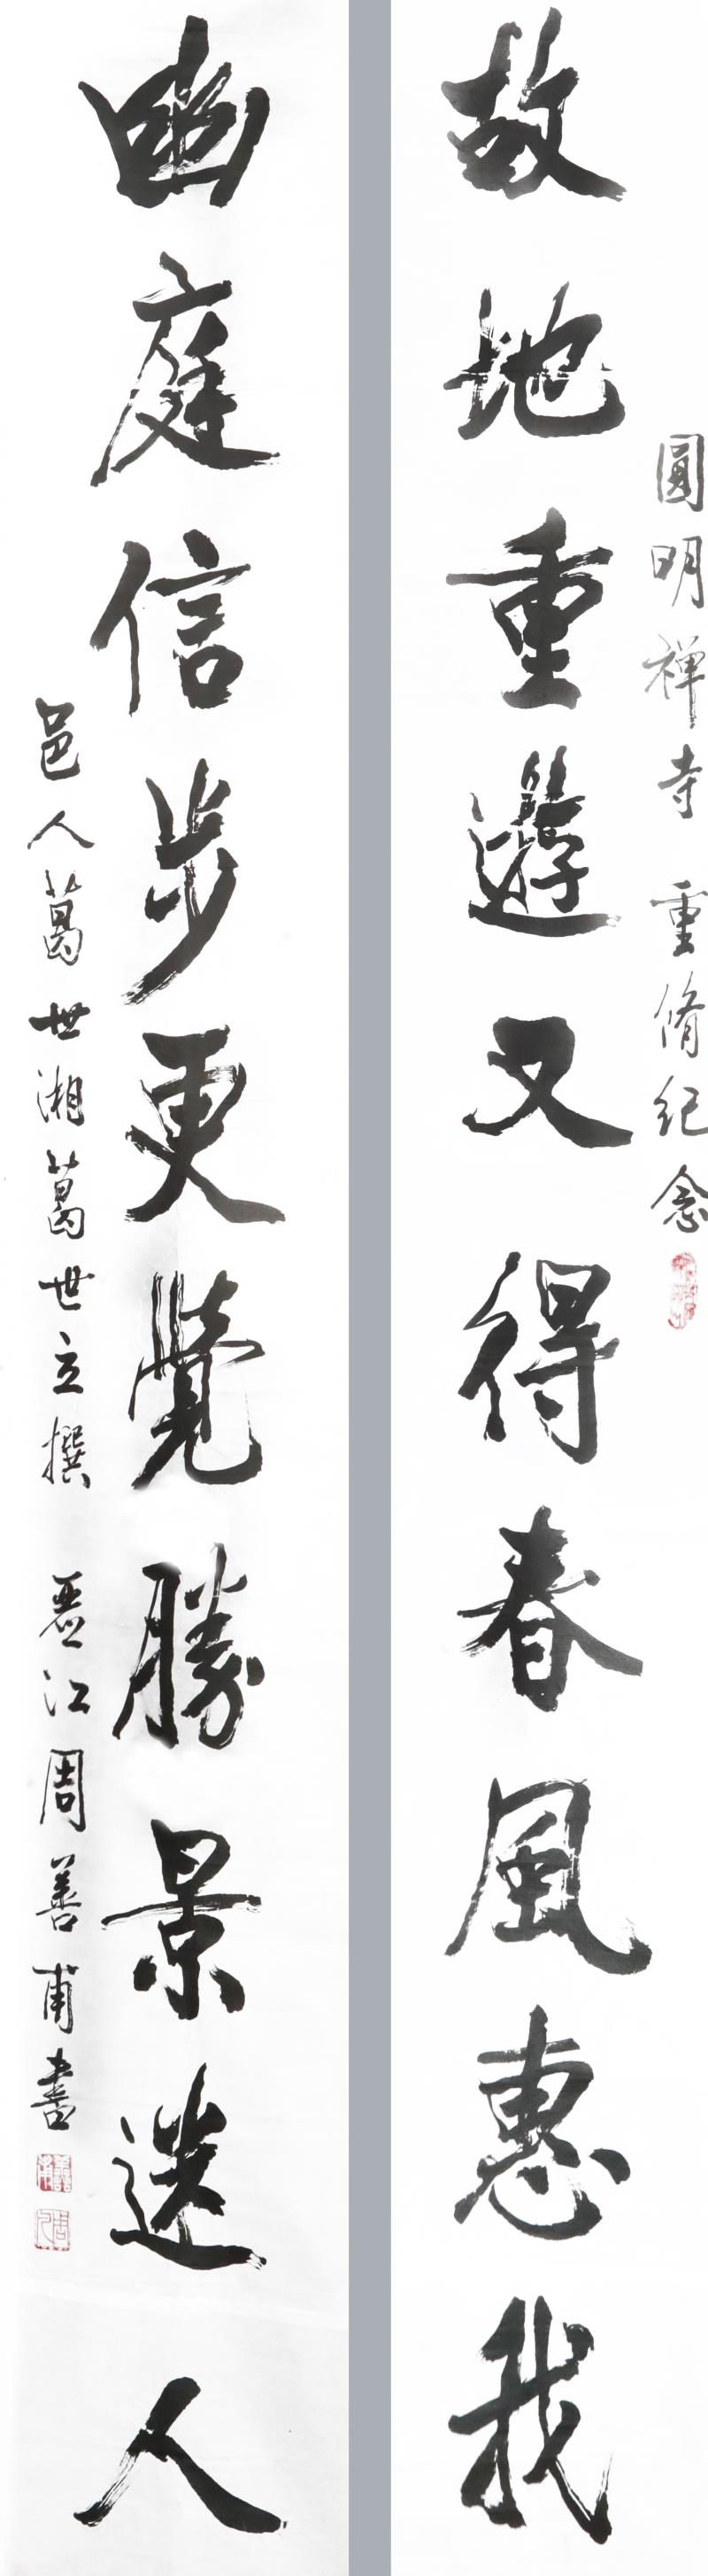 圓明禅寺 重脩纪念
故地重遊又得春風惠我
幽庭信步更覺勝景迷人
邑人葛世湘葛世立撰 江周善甫書